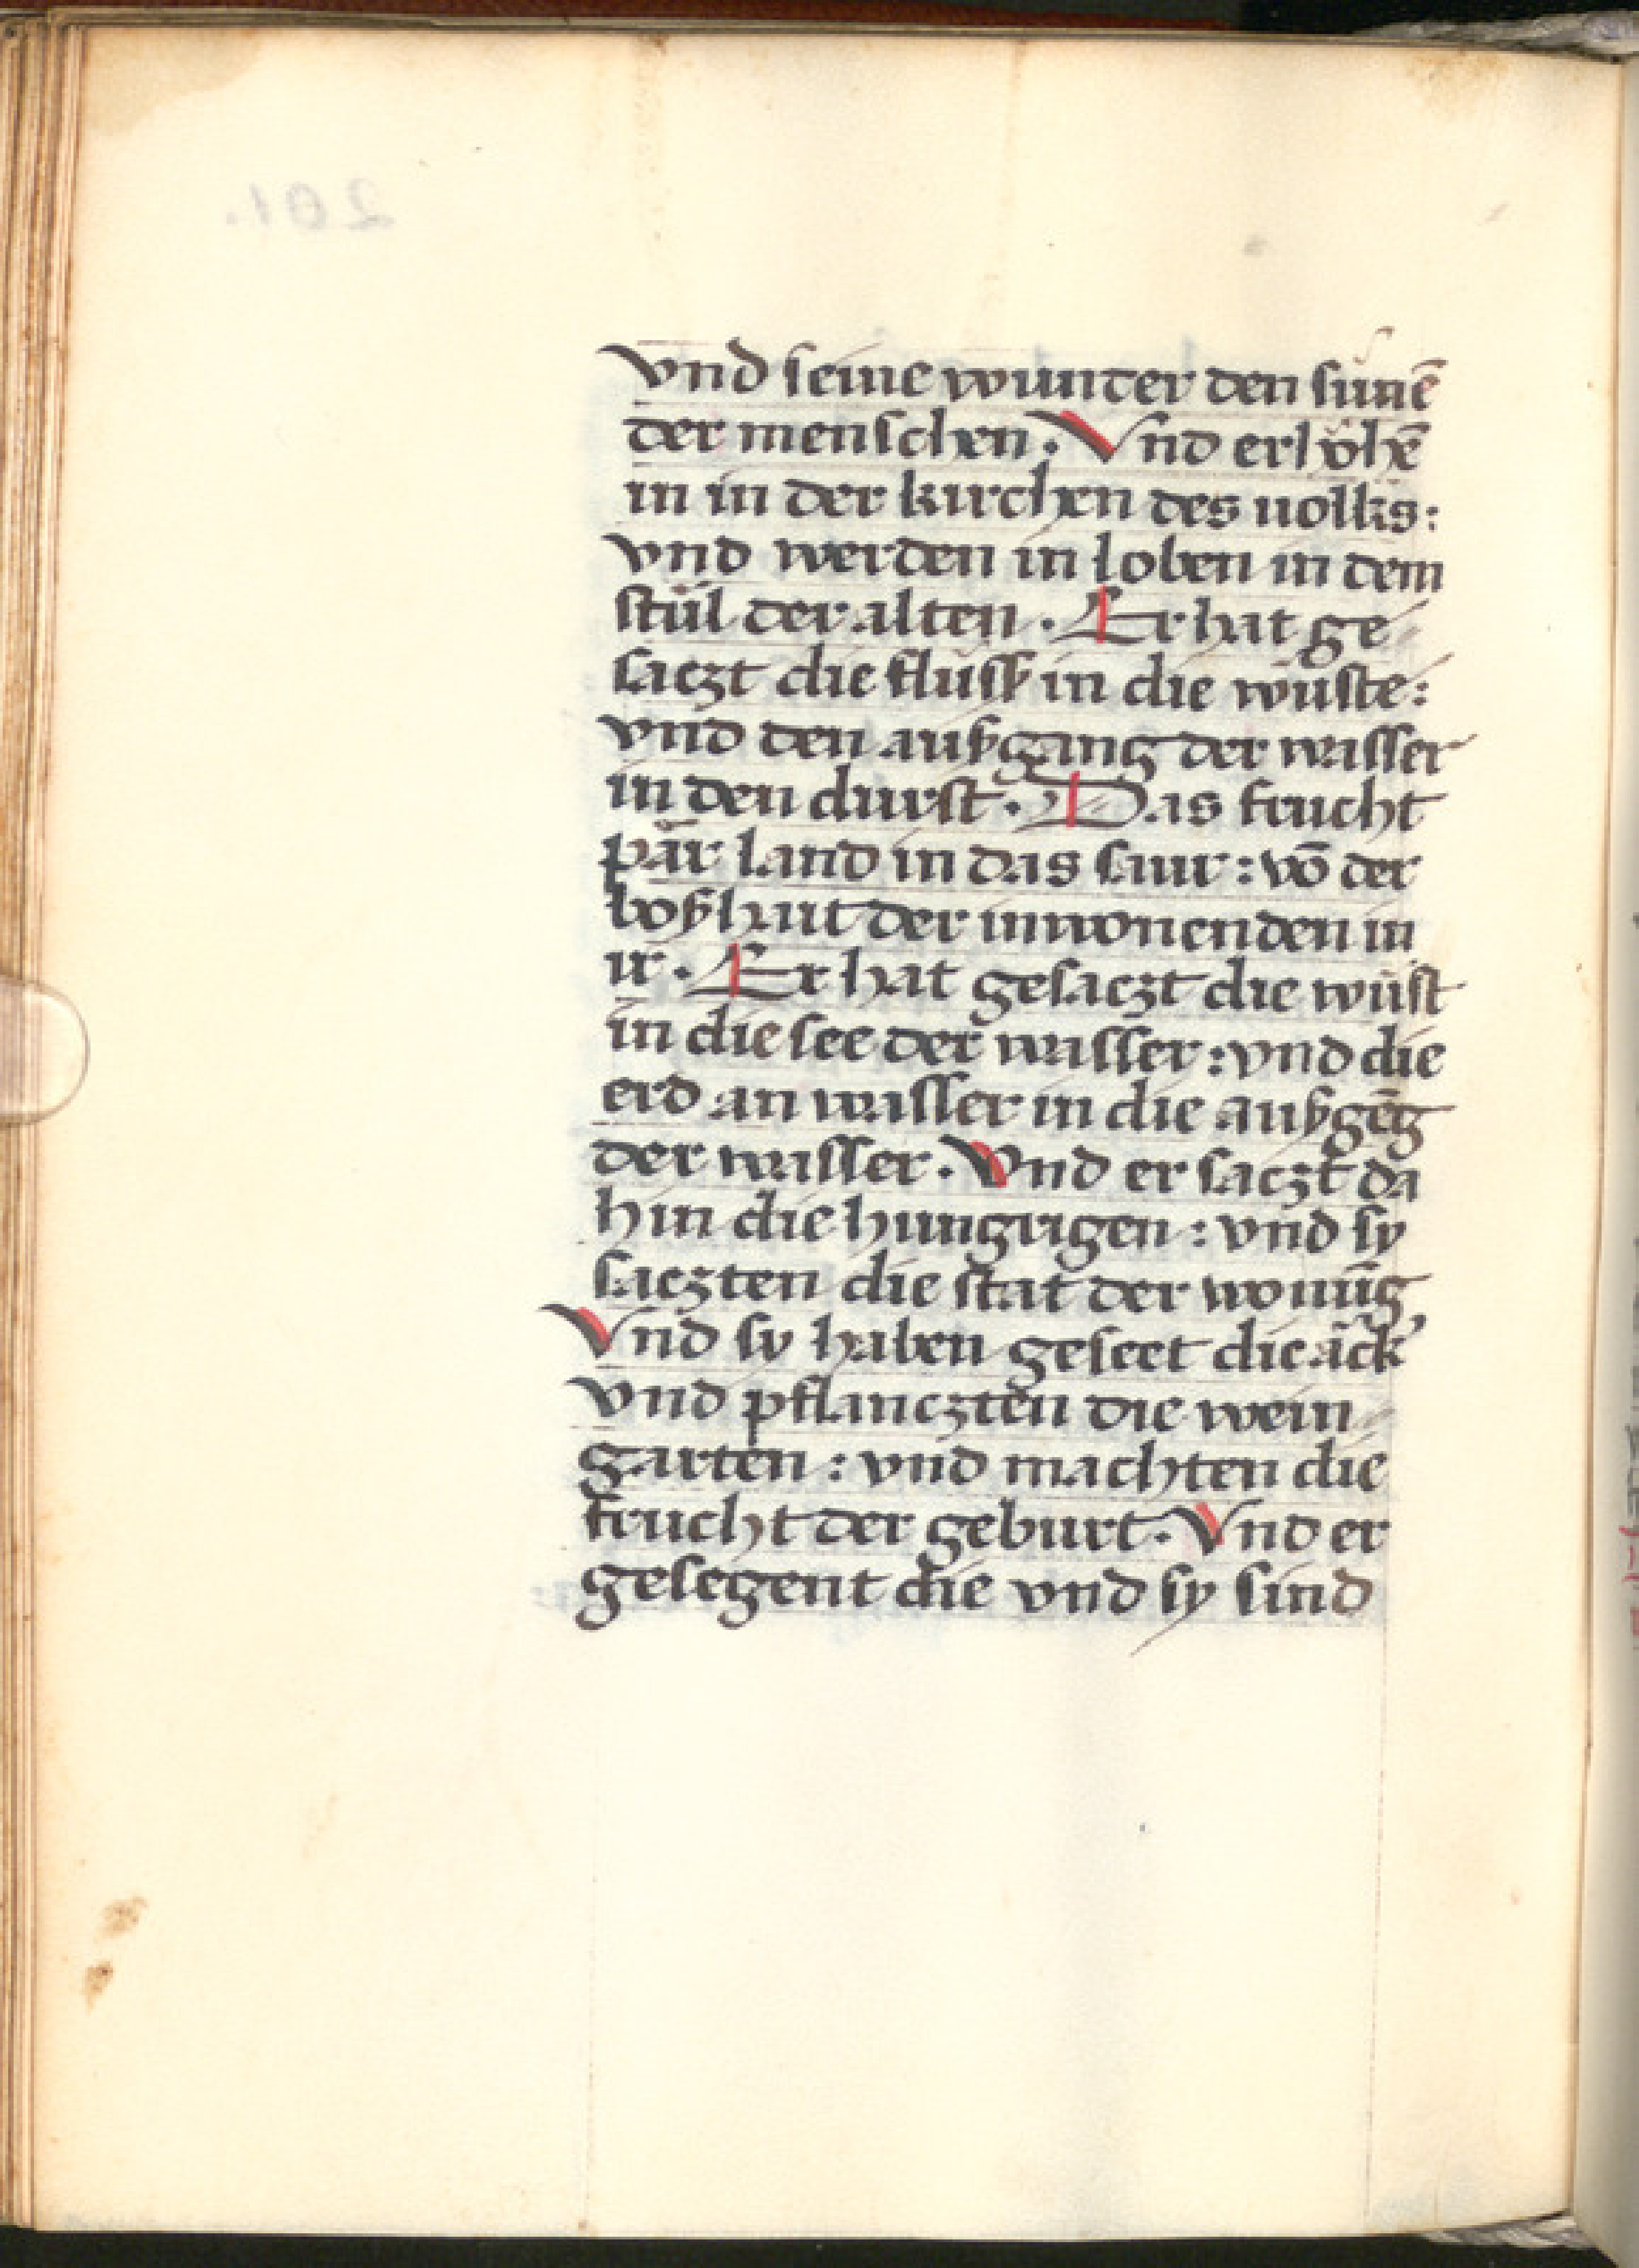 vnd seine wunter den sůnē
der menschen. Vnd erhöhē
in in der kirchen des uolks:
vnd werden in loben in dem
stůl der alten. Er hat ge
saczt die flüsß in die wüste:
vnd den außgang der wasser
in den durst. Das frucht
pär land in das saur: vō der
boßhait der inwonenden in
ir. Er hat gesaczt die wüst
in die see der wasser: vnd die
erd an wasser in die außgēg
der wasser. Vnd er saczt da
hin die hungrigen: vnd sy
saczten die stat der wonūg
Vnd sy haben geseet die äck'
vnd pflanczten die wein
garten: vnd machten die
frucht der geburt. Vnd er
gesegent die vnd sy sind